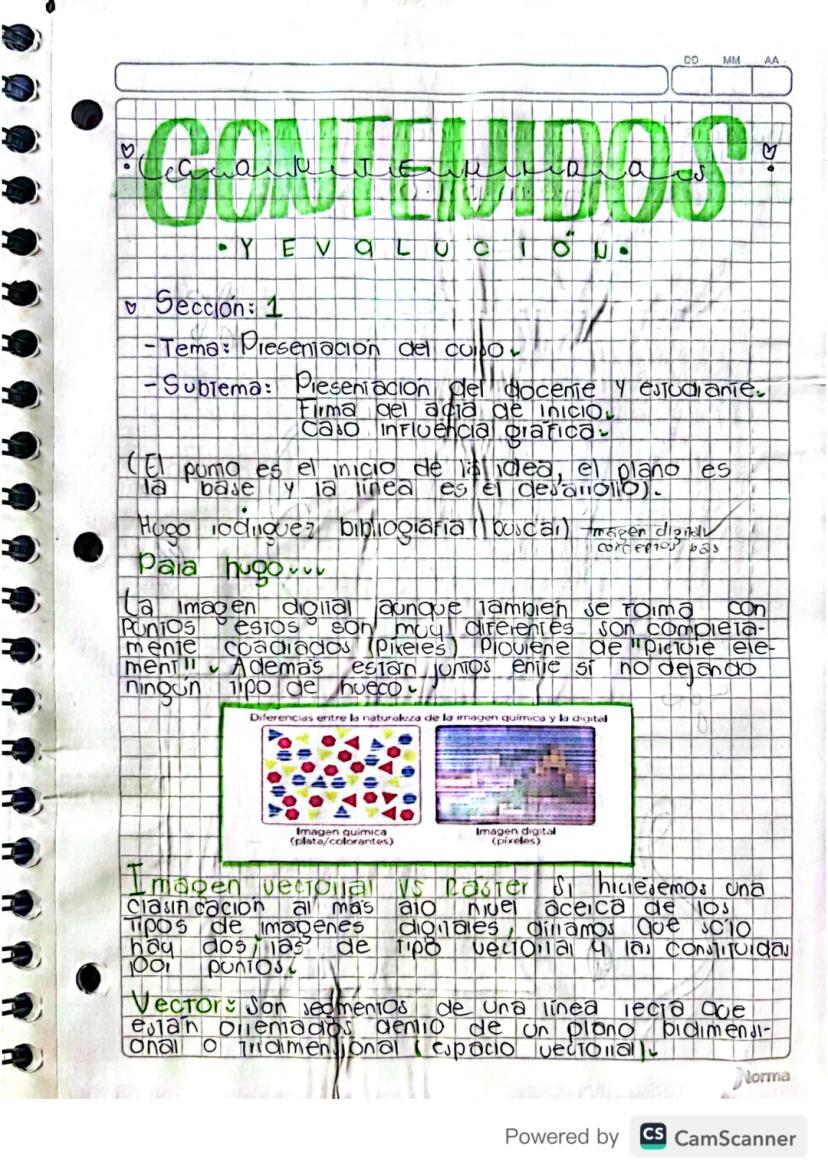 DD MM AA
CONTENIDOS
CONTENIDOS
• Y EVOLUCIÓN •
Sección: 1
- Tema: Presentación del curso.
- Subtema: Presentación del docente y estudiante.
Firma del acta de inicio.
Caso influencia gráfica.
(El punto es el inicio de la idea, el plano es
la base y la línea es el desarrollo).
Hugo rodriguez bibliografia (buscar) Imagen digital
conceptos bas
Para hugo...
La imagen digital aunque tambien se forma con
puntos estos son muy diferentes son completa-
mente cuadrados (pixeles) Proviene de "Picture ele-
ment". Además están juntos entre sí no dejando
ningún tipo de hueco.
Diferencias entre la naturaleza de la imagen química y la digital
Imagen química Imagen digital
(plata/colorantes) (píxeles)
Imagen vectorial VS Ráster Si hiciésemos una
clasificación al más alto nivel acerca de los
tipos de imágenes digitales, diríamos que sólo
hay dos, las de tipo vectorial y las constituidas
por puntos.
Vector: Son segmentos de una línea recta que
están orientados dentro de un plano bidimensi-
onal o tridimensional (espacio vectorial).
Norma
Powered by CS CamScanner